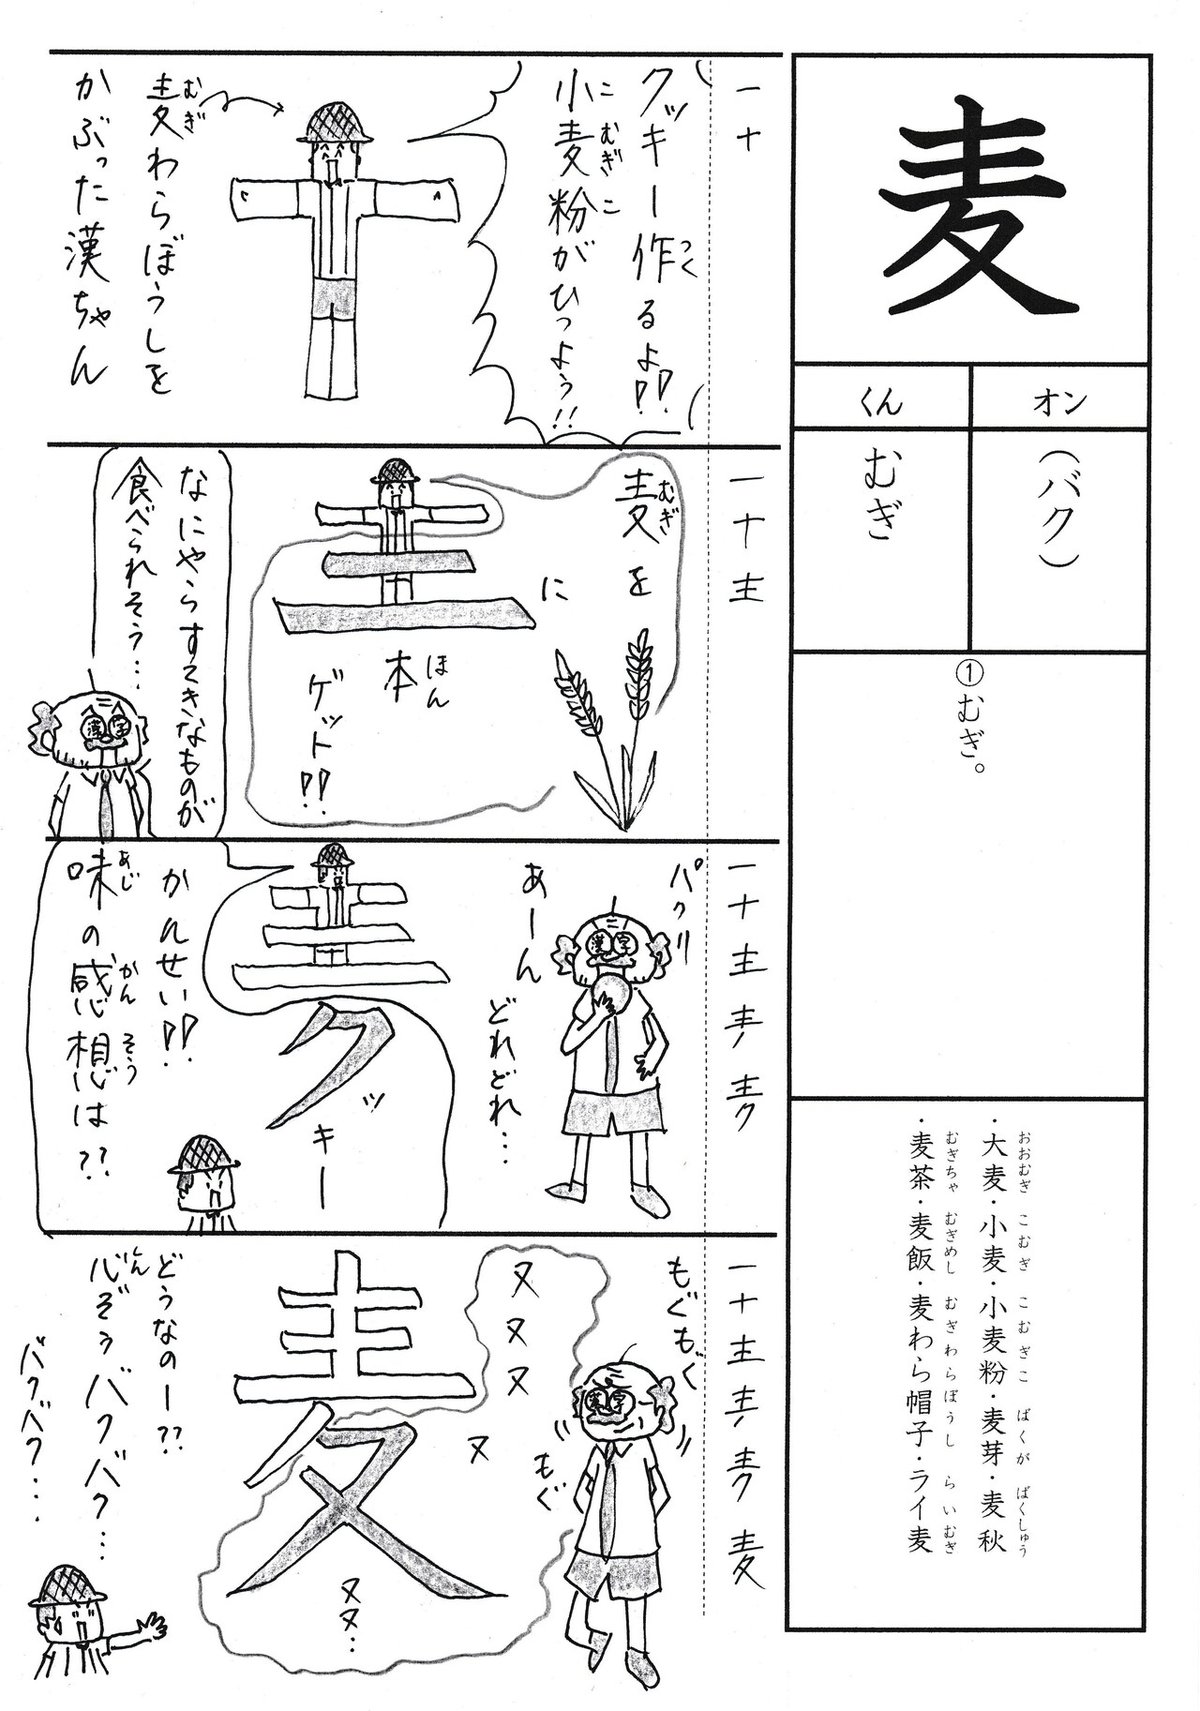 麦
オン
くん
(バク)
むぎ
①むぎ。
・大麦・小麦・小麦粉・麦芽・麦秋
おおむぎ こむぎ こむぎこ ばくが ばくしゅう
・麦茶・麦飯・麦わら帽子・ライ麦
むぎちゃ むぎめし むぎわらぼうし らいむぎ
一十
クッキー作るよ!!
つく
小麦粉がひつよう!!
こむぎこ
麦わらぼうしを
むぎ
かぶった漢ちゃん
一十主
麦を
むぎ
に
本
ほん
ゲット!!
なにやらすてきなものが
食べられそう…
漢字
一十主
パクリ
あーん
どれどれ…
漢字
クッキー
かんせい!!
味の感想は??
あじ かんそう
一十主
麦
もぐもぐ
もぐ
漢字
ヌヌヌヌ
麦
ヌヌ…
どうなのー??
心ぞうバクバク…
しん
バクバク…